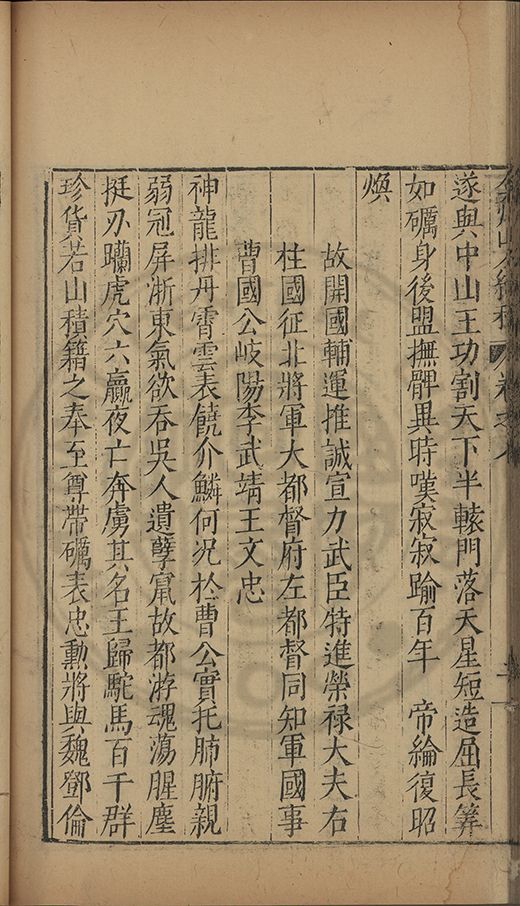 遂與中山王功割天下半轅門落天星短造屈長筭
如礪身後盟撫髀異時嘆寂寂踰百年　帝綸復昭
煥
故開國輔運推誠宣力武臣特進榮禄大夫右
柱國征北將軍大都督府左都督同知軍國事
曹國公岐陽李武靖王文忠
神龍排丹霄雲表饒介鱗何況於曹公實托肺腑親
弱冠屏浙東氣欲吞吳人遺孽竄故都游魂蕩腥塵
挺刃躪虎穴六驘夜亡奔虜其名王歸駝馬百千群
珍貨若山積籍之奉至尊帶礪表忠勳將與魏鄧倫